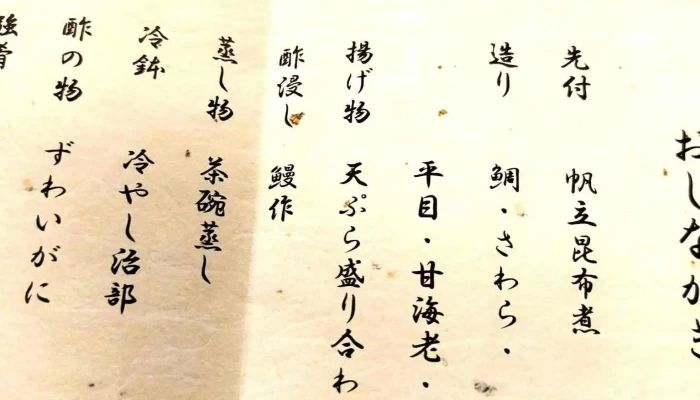 おしながき
先付 帆立昆布煮
造り 鯛・さわら・
平目・甘海老・
揚げ物 天ぷら盛り合わ
酢浸し 鰻作
蒸し物 茶碗蒸し
冷鉢 冷やし治部
酢の物 ずわいがに
強肴